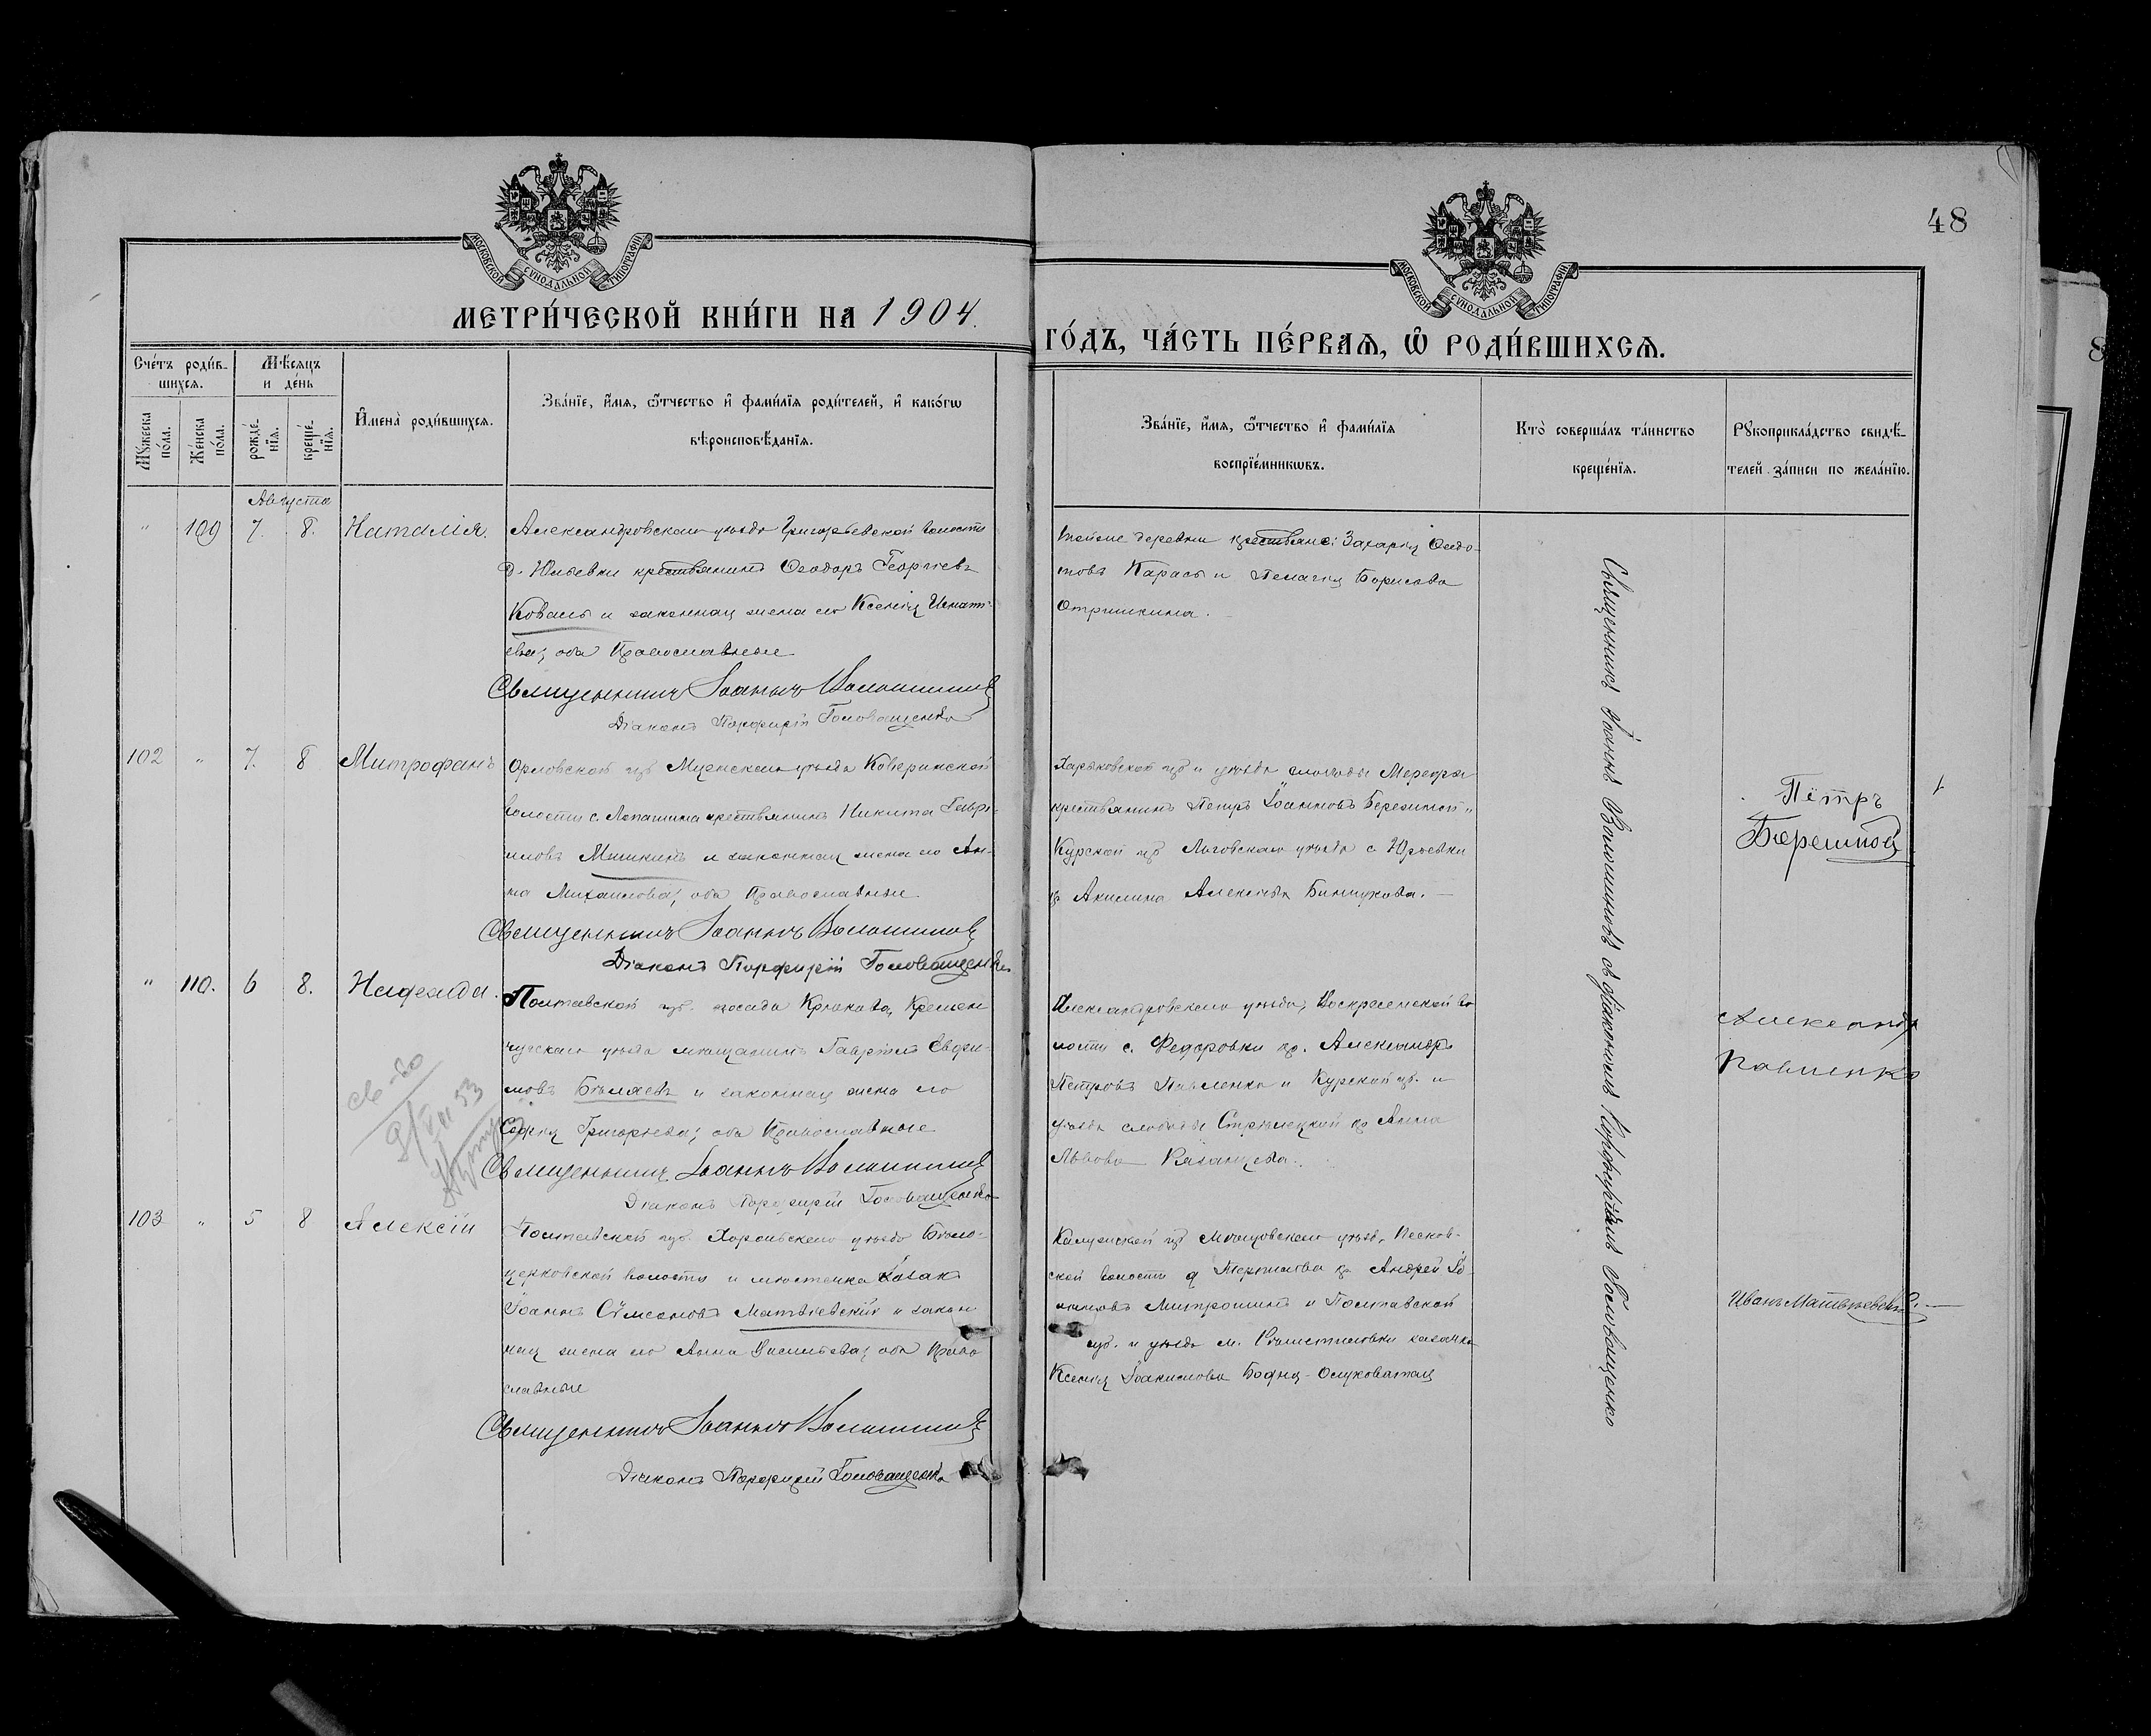 48
МОСКОВСКОЙ СУНОДАЛЬНОЙ ТИПОГРАФІИ
МОСКОВСКОЙ СУНОДАЛЬНОЙ ТИПОГРАФІИ
МЕТРИ́ЧЕСКОЙ КНИ́ГИ НА 1904.
ГО́ДЪ, ЧА́СТЬ ПЕ́РВАѦ, Ѡ҆ РОДИ́ВШИХСѦ.
Сче́тъ роди́в-
шихсѧ.
Мꙋ́жеска по́ла.
Же́нска по́ла.
Мѣ́сѧцъ
и де́нь
рожде́-
нїѧ.
креще́-
нїѧ.
И҆мена̀ роди́вшихсѧ.
Зва́нїе, и҆́мѧ, ѻ҆́тчество и҆ фами́лїѧ роди́телей, и҆ како́гѡ
вѣроисповѣ́данїѧ.
Зва́нїе, и҆́мѧ, ѻ҆́тчество и҆ фами́лїѧ
воспрїе́мникѡвъ.
Кто̀ соверша́лъ та́инство
креще́нїѧ.
Рꙋкоприкла́дство свидѣ́-
телей за́писи по жела́нїю.
Августа
" 109 7. 8. Наталія.
Александровскаго уѣзда Григорьевской волости
д. Юльевки крестьянинъ Ѳеодоръ Георгіевъ
Коваль и законная жена его Ксенія Игнать-
ева; оба Православные
Священникъ Іоаннъ Волошиновъ
Діаконъ Порфирій Головащенко
Тойже деревни крестьяне: Захарія Ѳедо-
товъ Карась и Пелагія Борисова
102 " 7. 8 Митрофанъ
Орловской губ Мценскаго уѣзда
волости с. крестьянинъ Никита Гаврі-
иловъ Мишкинъ и законная жена его Ан-
на Михаилова; оба Православные
Священникъ Іоаннъ Волошиновъ
Діаконъ Порфирій Головащенко
Харьковской губ и уѣзда слободы Мерефы
крестьянинъ Петръ Іоанновъ
Курской губ Льговскаго уѣзда с Юрьевки
кр Акилина Алексѣева
Пётръ
" 110. 6 8. Надежда.
Полтавской губ. посада Крюкова, Кремен
чугскаго уѣзда мѣщанинъ Гавріилъ Евфи-
мовъ Бѣляевъ и законная жена его
Софія Григорьева; оба Православные
Священникъ Іоаннъ Волошиновъ
Діаконъ Порфирій Головащенко
св-во
Александровскаго уѣзда, Воскресенской во
лости с. Федоровки кр. Александръ
Петровъ Павленко и Курской губ. и
уѣзда слободы Стрѣлецкой кр Анна
Львова Казанцева.
Александръ
Павленко
103 " 5 8 Алексій
Полтавской губ. Хорольскаго уѣзда Бѣло-
церковской волости и мѣстечка козак
Іоаннъ Сѵмеоновъ Матвіевскій и закон
ная жена его Анна Васильева; оба Право
славные
Священникъ Іоаннъ Волошиновъ
Діаконъ Порфирій Головащенко
Калужской губ Мосальскаго уѣзд. Песков-
ской волости кр Андрей Іо-
анновъ Митрошинъ и Полтавской
губ. и уѣзда м. Рѣшетиловки казачка
Ксенія Іоакимова
Иванъ Матвѣевскій.
Священникъ Іоаннъ Волошиновъ съ діакономъ Порфиріемъ Головащенко